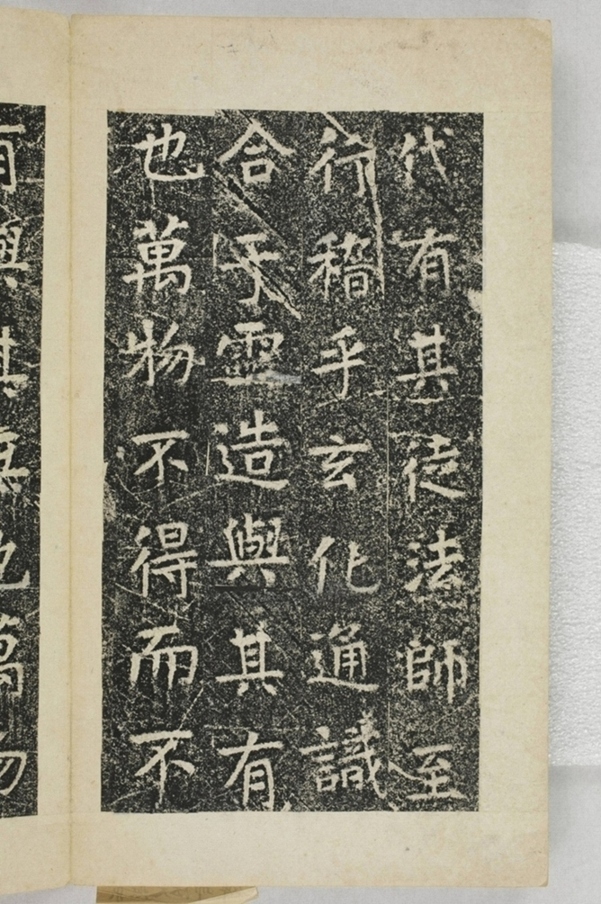 代有其徒法師至
行稽乎玄化通識
合于靈造與其有
也萬物不得而不
有與其無也萬物